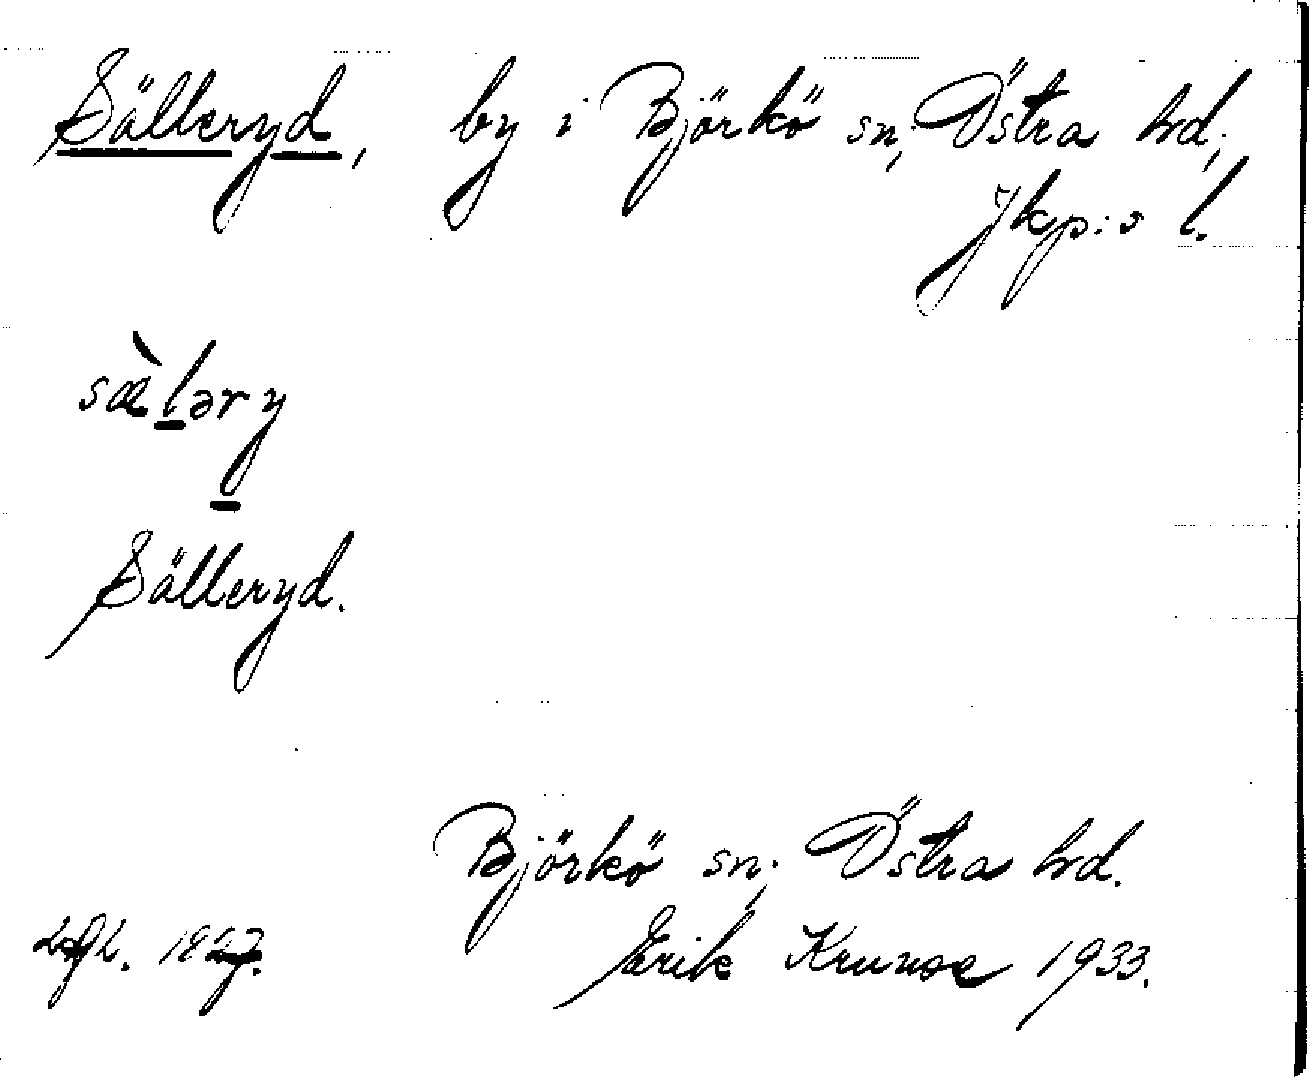 Sälleryd, by i Björkö sn, Östra hd,
Jkp:s l.
sæ̀ləry
Sälleryd.
Björkö sn, Östra hd.
Erik Krunse 1933.